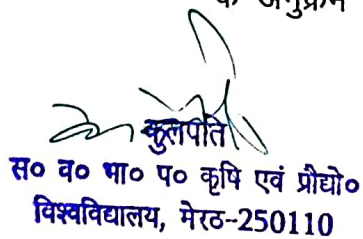 के अनुक्रम
कुलपति
स० व० भा० प० कृषि एवं प्रौद्यो०
विश्वविद्यालय, मेरठ-250110